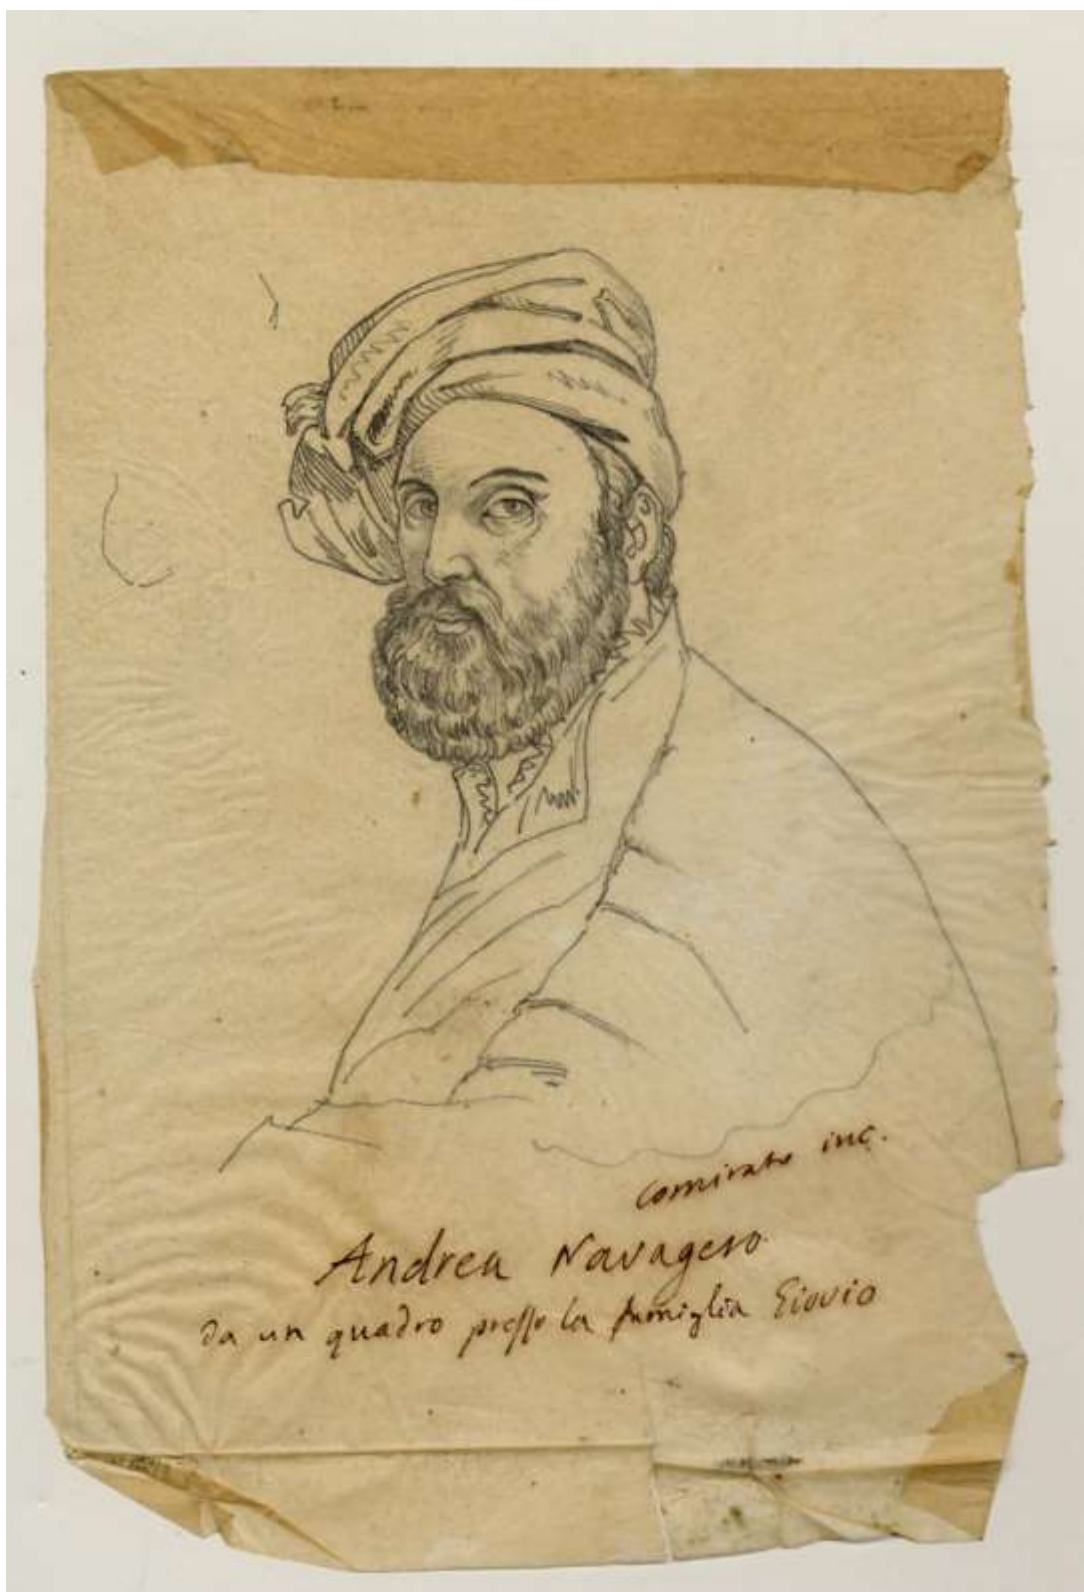 Comirato inc.
Andrea Navagero
da un quadro presso la famiglia Giovio